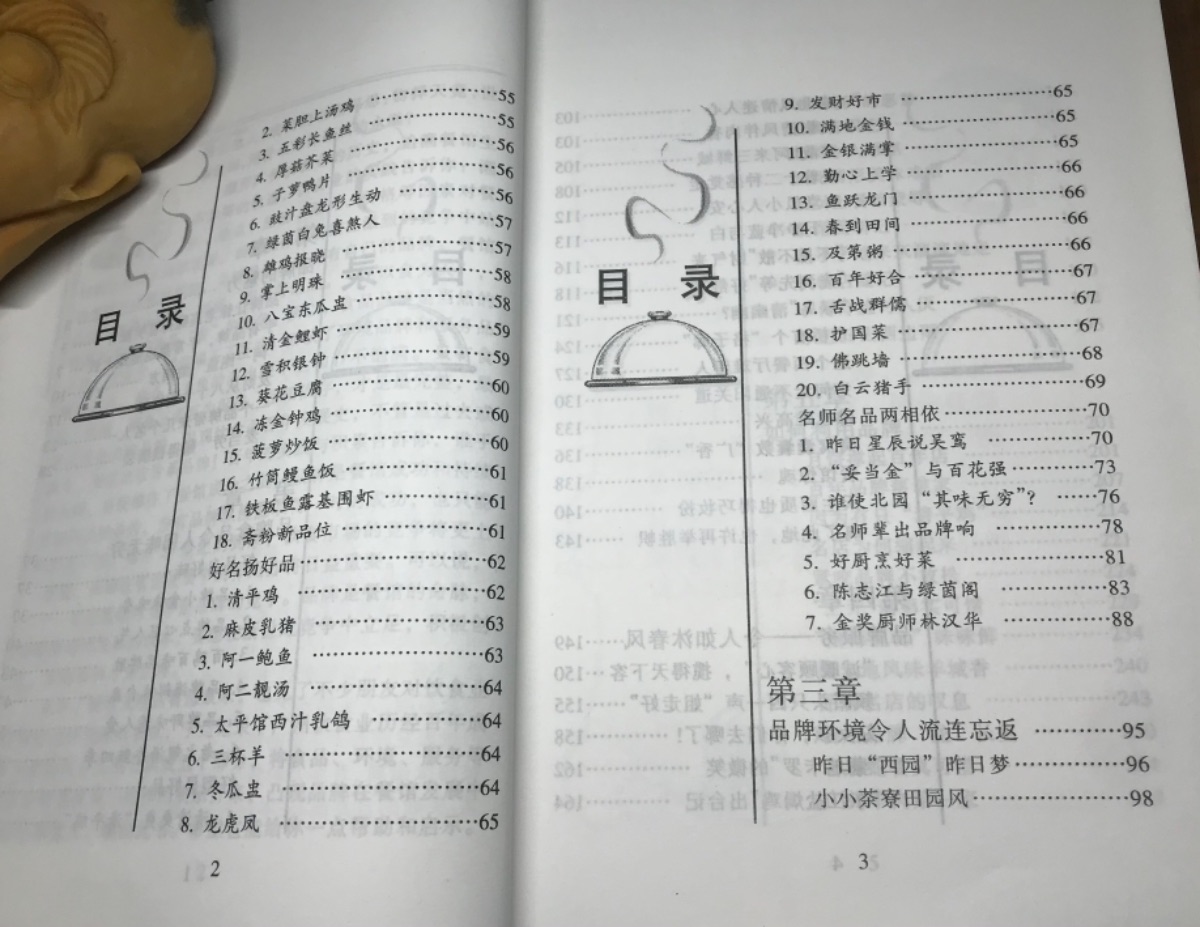 目 录
2. 菜胆上汤鸡 ……………55
3. 五彩长鱼丝 ……………55
4. 厚菇芥菜 ……………56
5. 子萝鸭片 ……………56
6. 豉汁盘龙形生动 ……………56
7. 绿茵白兔喜煞人 ……………57
8. 雄鸡报晓 ……………57
9. 掌上明珠 ……………58
10. 八宝东瓜盅 ……………58
11. 清金鲤虾 ……………59
12. 雪积银钟 ……………59
13. 葵花豆腐 ……………60
14. 冻金钟鸡 ……………60
15. 菠萝炒饭 ……………60
16. 竹筒鳗鱼饭 ……………61
17. 铁板鱼露基围虾 ……………61
18. 斋粉新品位 ……………61
好名扬好品 ……………62
1. 清平鸡 ……………62
2. 麻皮乳猪 ……………63
3. 阿一鲍鱼 ……………63
4. 阿二靓汤 ……………64
5. 太平馆西汁乳鸽 ……………64
6. 三杯羊 ……………64
7. 冬瓜盅 ……………64
8. 龙虎凤 ……………65
2
目 录
9. 发财好市 ……………65
10. 满地金钱 ……………65
11. 金银满掌 ……………65
12. 勤心上学 ……………66
13. 鱼跃龙门 ……………66
14. 春到田间 ……………66
15. 及第粥 ……………66
16. 百年好合 ……………67
17. 舌战群儒 ……………67
18. 护国菜 ……………67
19. 佛跳墙 ……………68
20. 白云猪手 ……………69
名师名品两相依 ……………70
1. 昨日星辰说吴鸾 ……………70
2. “妥当金”与百花强 ……………73
3. 谁使北园“其味无穷”? ……76
4. 名师辈出品牌响 ……………78
5. 好厨烹好菜 ……………81
6. 陈志江与绿茵阁 ……………83
7. 金奖厨师林汉华 ……………88
第三章
品牌环境令人流连忘返 …………95
昨日“西园”昨日梦 ……………96
小小茶寮田园风 ……………98
3